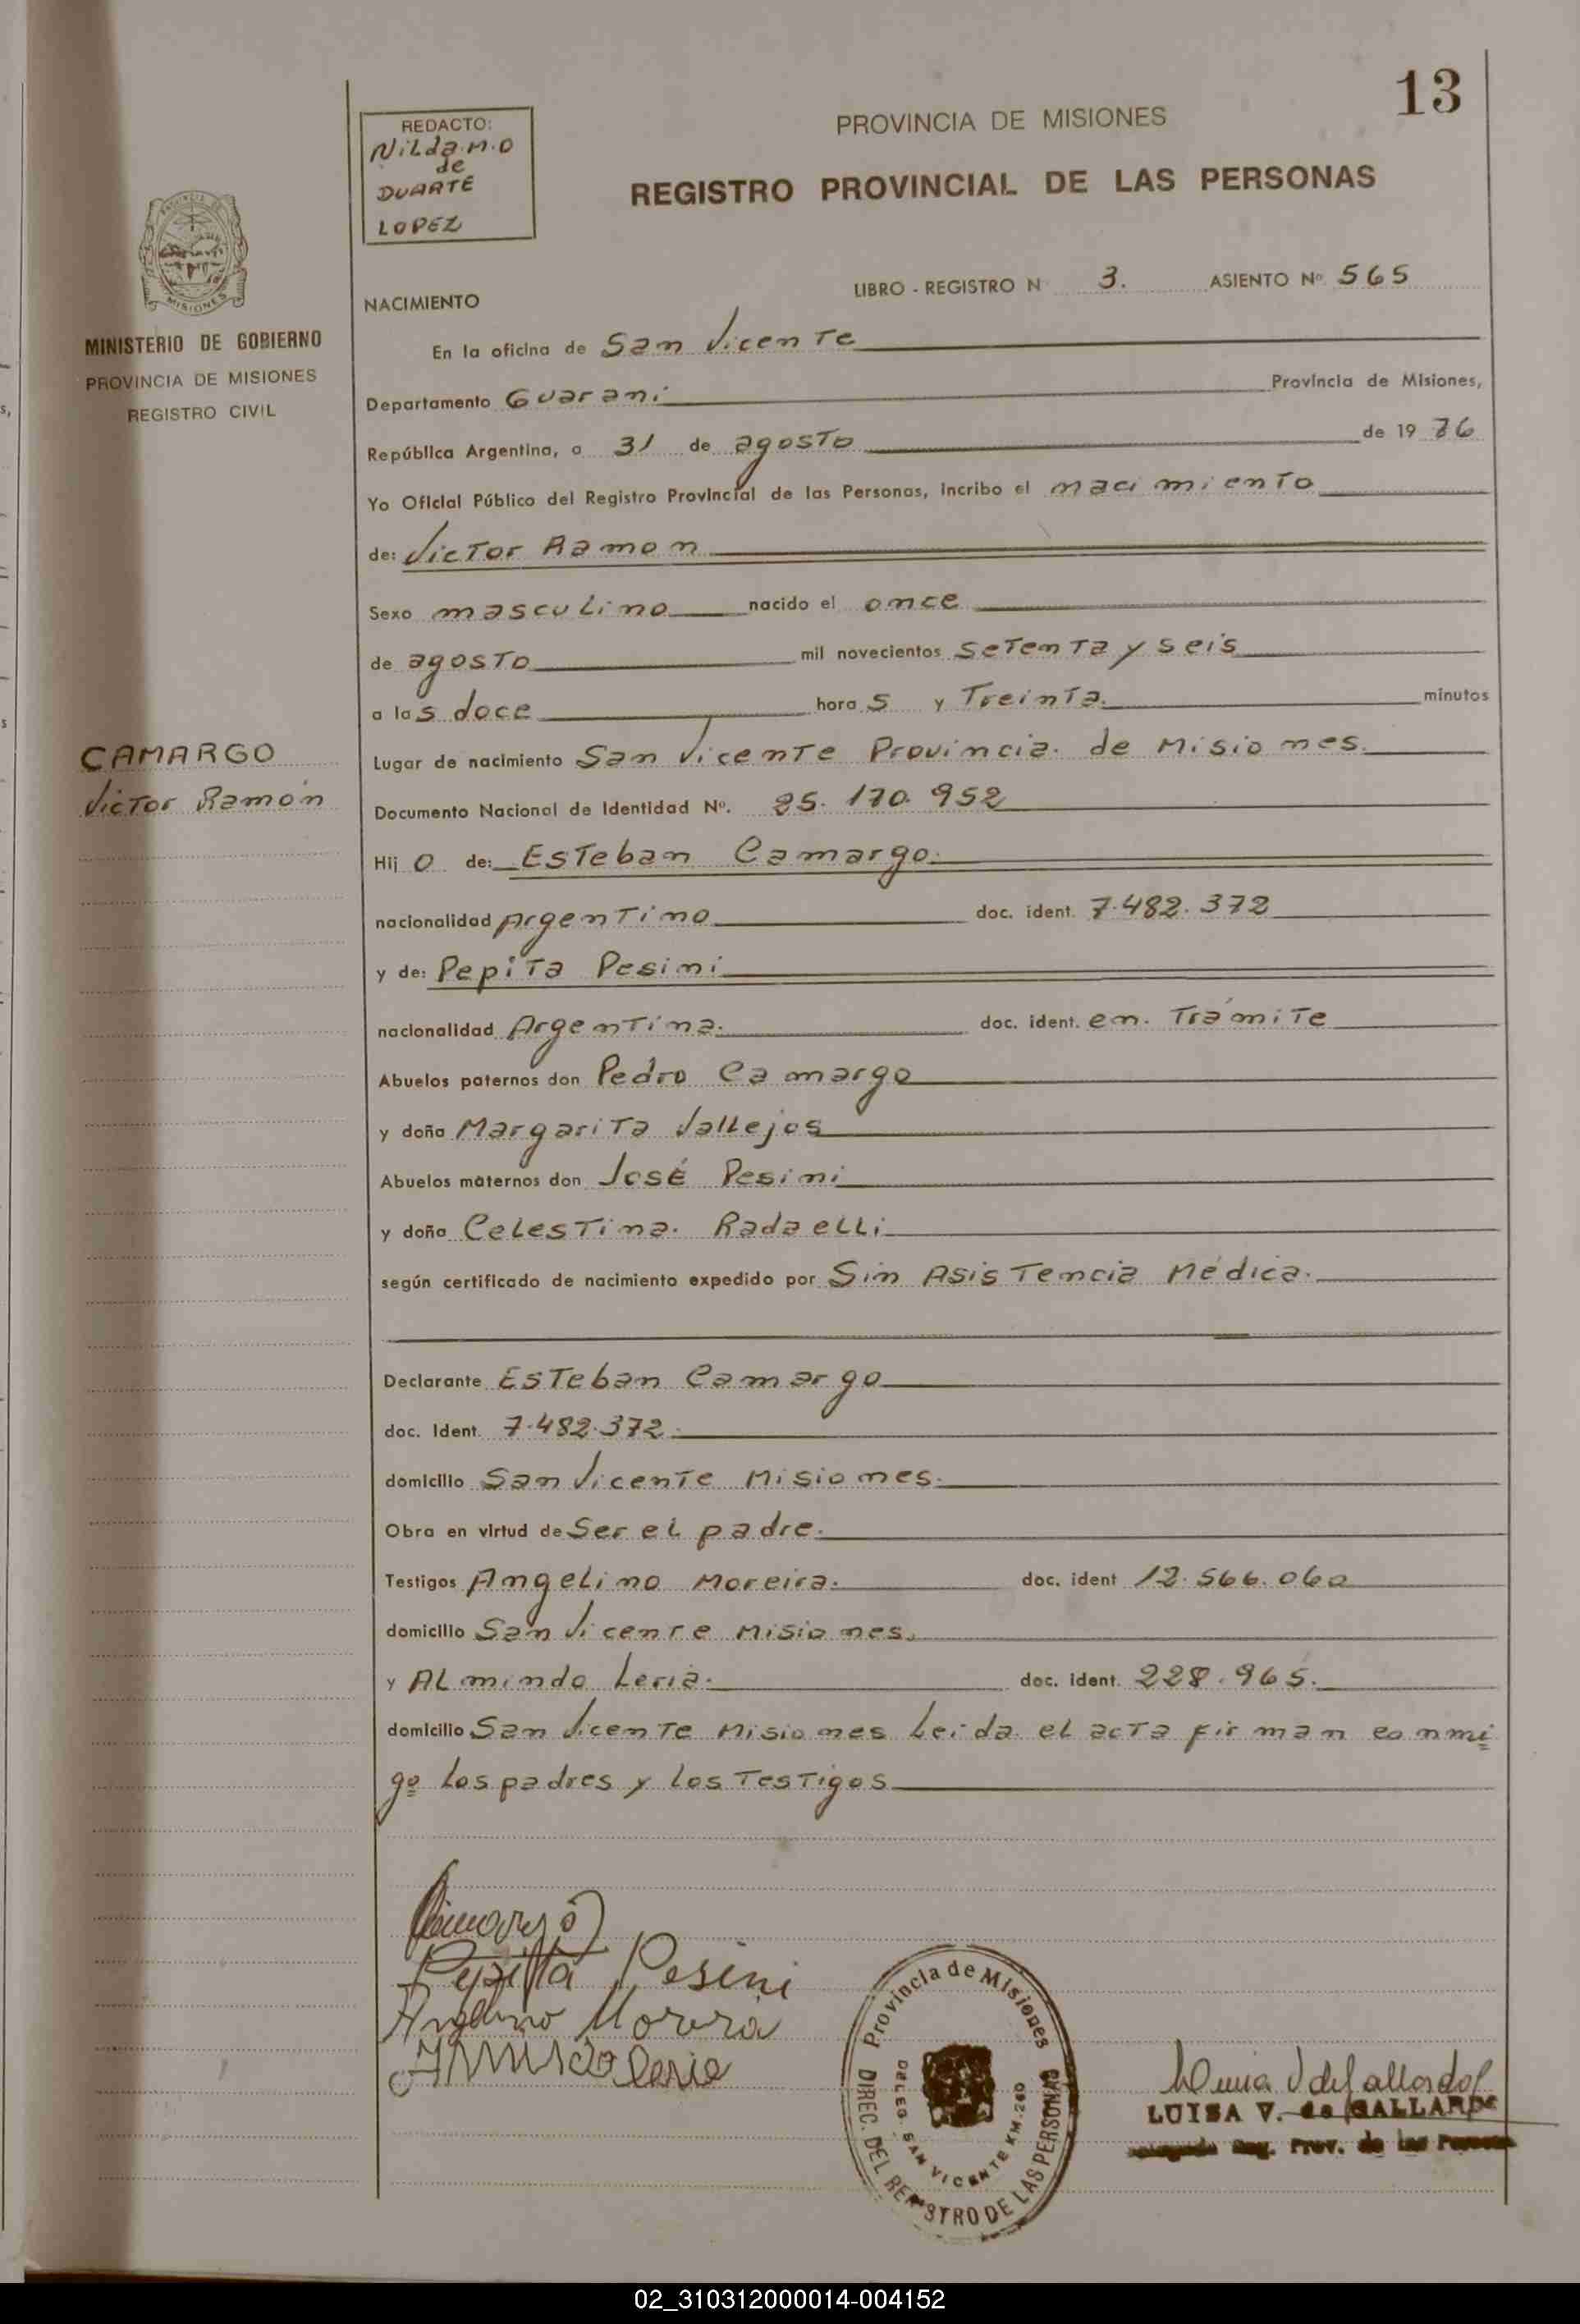 13
REDACTO:
Nilda.M.O
de
DUARTE
LOPEZ
PROVINCIA DE MISIONES
REGISTRO PROVINCIAL DE LAS PERSONAS
MISIONES
MINISTERIO DE GOBIERNO
PROVINCIA DE MISIONES
REGISTRO CIVIL
LIBRO - REGISTRO N 3. ASIENTO Nº 565
NACIMIENTO
En la oficina de San Vicente
Departamento Guarani Provincia de Misiones,
República Argentina, a 31 de agosto de 19 76
Yo Oficial Público del Registro Provincial de las Personas, incribo el nacimiento
de: Victor Ramon
Sexo masculino nacido el once
de agosto mil novecientos setenta y seis
a las doce horas y Treinta. minutos
CAMARGO
Victor Ramón
Lugar de nacimiento San Vicente Provincia. de Misiones.
Documento Nacional de Identidad Nº. 25.170.952
Hijo de: Esteban Camargo.
nacionalidad Argentino doc. ident. 7.482.372
y de: Pepita Pesini
nacionalidad Argentina. doc. ident. en. Trámite
Abuelos paternos don Pedro Camargo
y doña Margarita Vallejos
Abuelos maternos don José Pesini
y doña Celestina. Radaelli
según certificado de nacimiento expedido por Sin Asistencia Médica.
Declarante Esteban Camargo
doc. Ident. 7.482.372.
domicilio San Vicente Misiones.
Obra en virtud de Ser el padre.
Testigos Angelino Moreira. doc. ident 12.566.060
domicilio San Vicente Misiones.
y Almindo Leria. doc. ident. 228.965.
domicilio San Vicente Misiones Leida. el acta firman conmi
go los padres y los Testigos
Camargo
Pepita Pesini
Angelino Moreira
Almindo Leria
Provincia de Misiones
DIREC. DEL REGISTRO DE LAS PERSONAS
DELEG. SAN VICENTE KM. 260
Luisa V de Gallardo
LUISA V. de GALLARDO
Delegada Reg. Prov. de las Personas
02_310312000014-004152